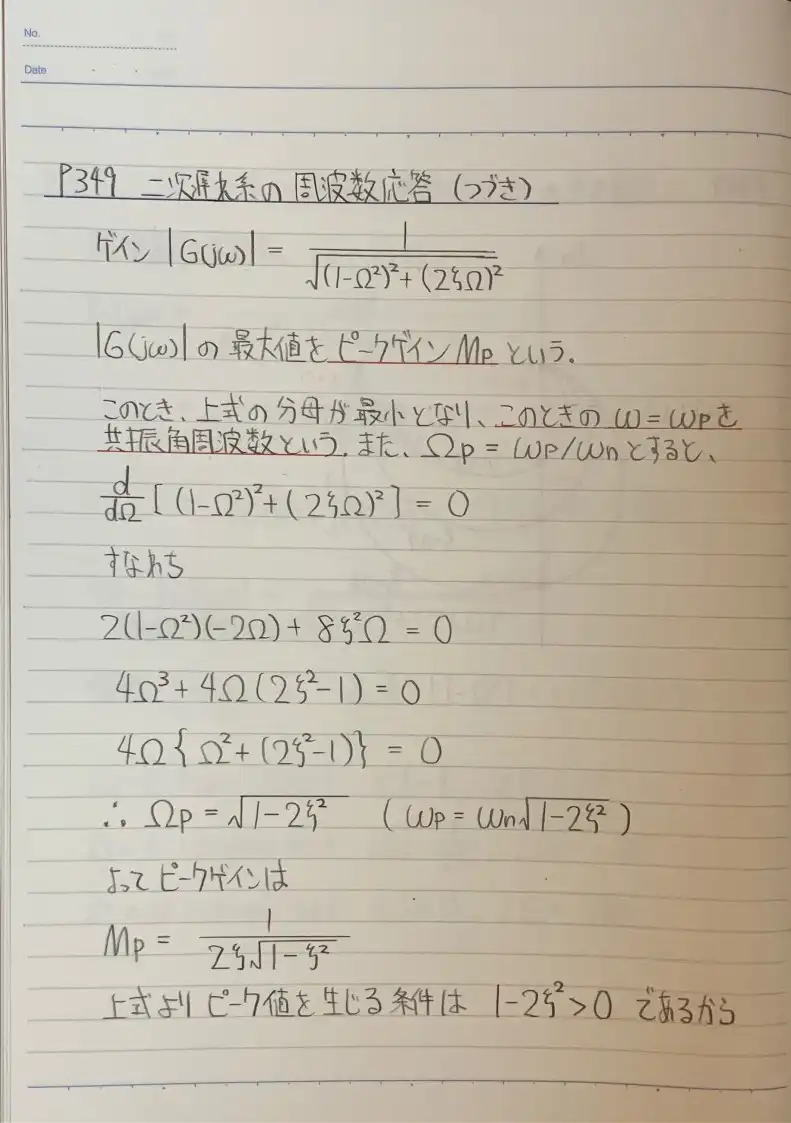 No.
Date
P349 二次遅れ系の周波数応答(つづき)
ゲイン |G(jω)| = 1/√((1-Ω²)²+(2ζΩ)²)
|G(jω)|の最大値をピークゲインMpという。
このとき、上式の分母が最小となり、このときのω=ωpを
共振角周波数という。また、Ωp = ωp/ωnとすると、
d/dΩ [(1-Ω²)²+(2ζΩ)²] = 0
すなわち
2(1-Ω²)(-2Ω) + 8ζ²Ω = 0
4Ω³ + 4Ω(2ζ²-1) = 0
4Ω{Ω²+(2ζ²-1)} = 0
∴ Ωp = √(1-2ζ²) (ωp = ωn√(1-2ζ²))
よってピークゲインは
Mp = 1/(2ζ√(1-ζ²))
上式よりピーク値を生じる条件は 1-2ζ²>0 であるから